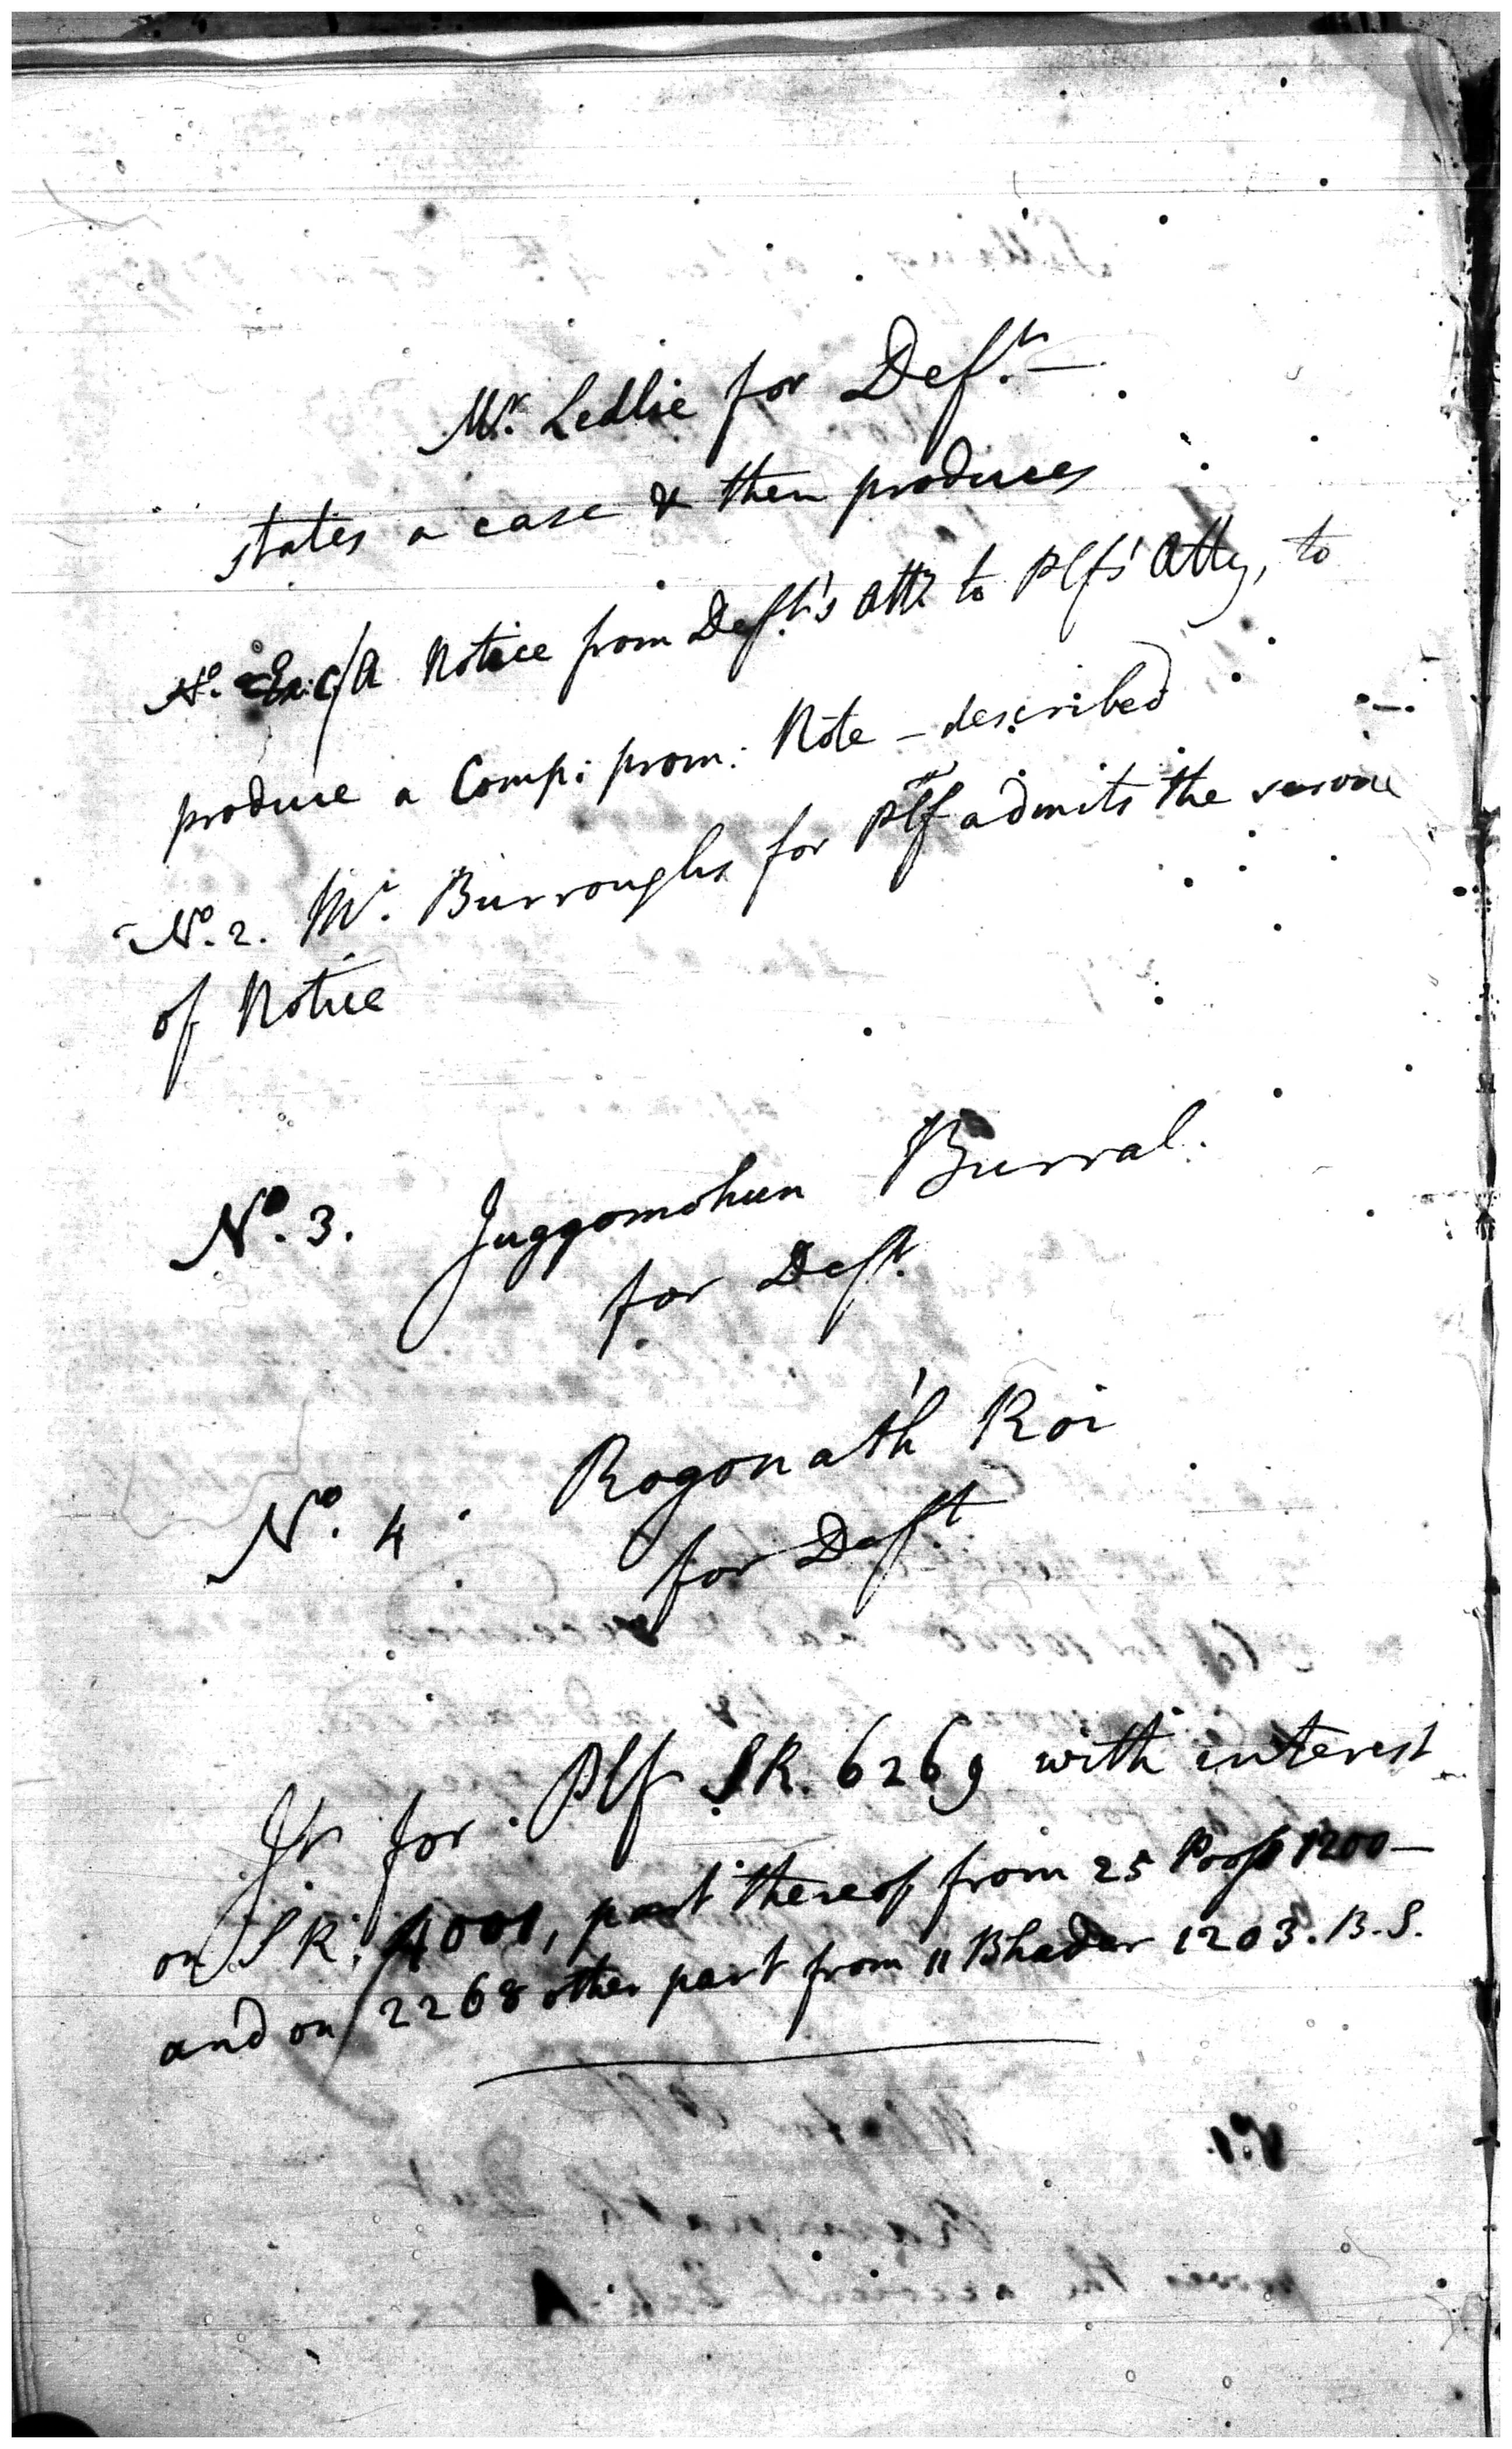 Mr. Ledlie for Deft. —
states a case & then produces
No. Ex. A Notice from Deft's Atty to Plfs' Atty, to
produce a Comp: prom: Note — described
No. 2. Mr. Burroughs for Plf admits the service
of Notice
No. 3. Juggomohun Burral.
for Deft.
No. 4. Rogonath Roi
for Deft
Jt for Plf SR. 6269 with interest
on SR. 4001, part thereof from 25 1200 —
and on 2268 other part from 11 Bhader 1203. B. S.